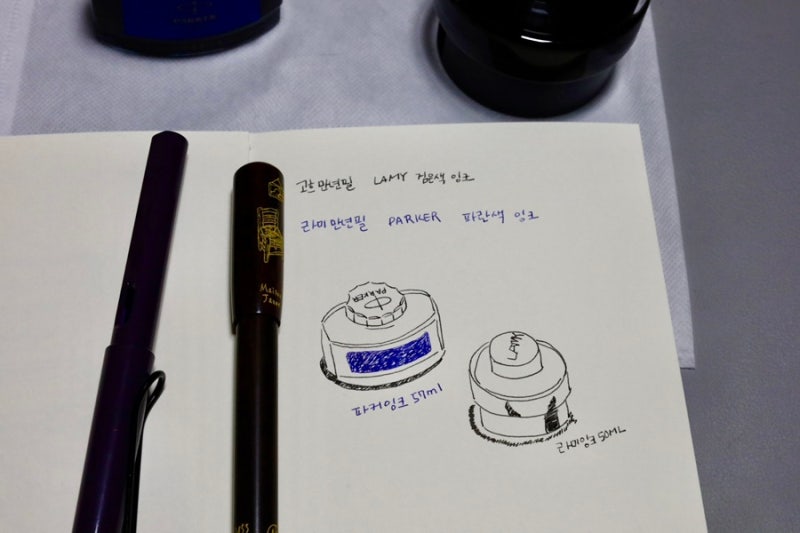 PARKER
고흐만년필 LAMY 검은색 잉크
라미만년필 PARKER 파란색 잉크
PARKER
LAMY
파커잉크 57ml
라미잉크 50ML